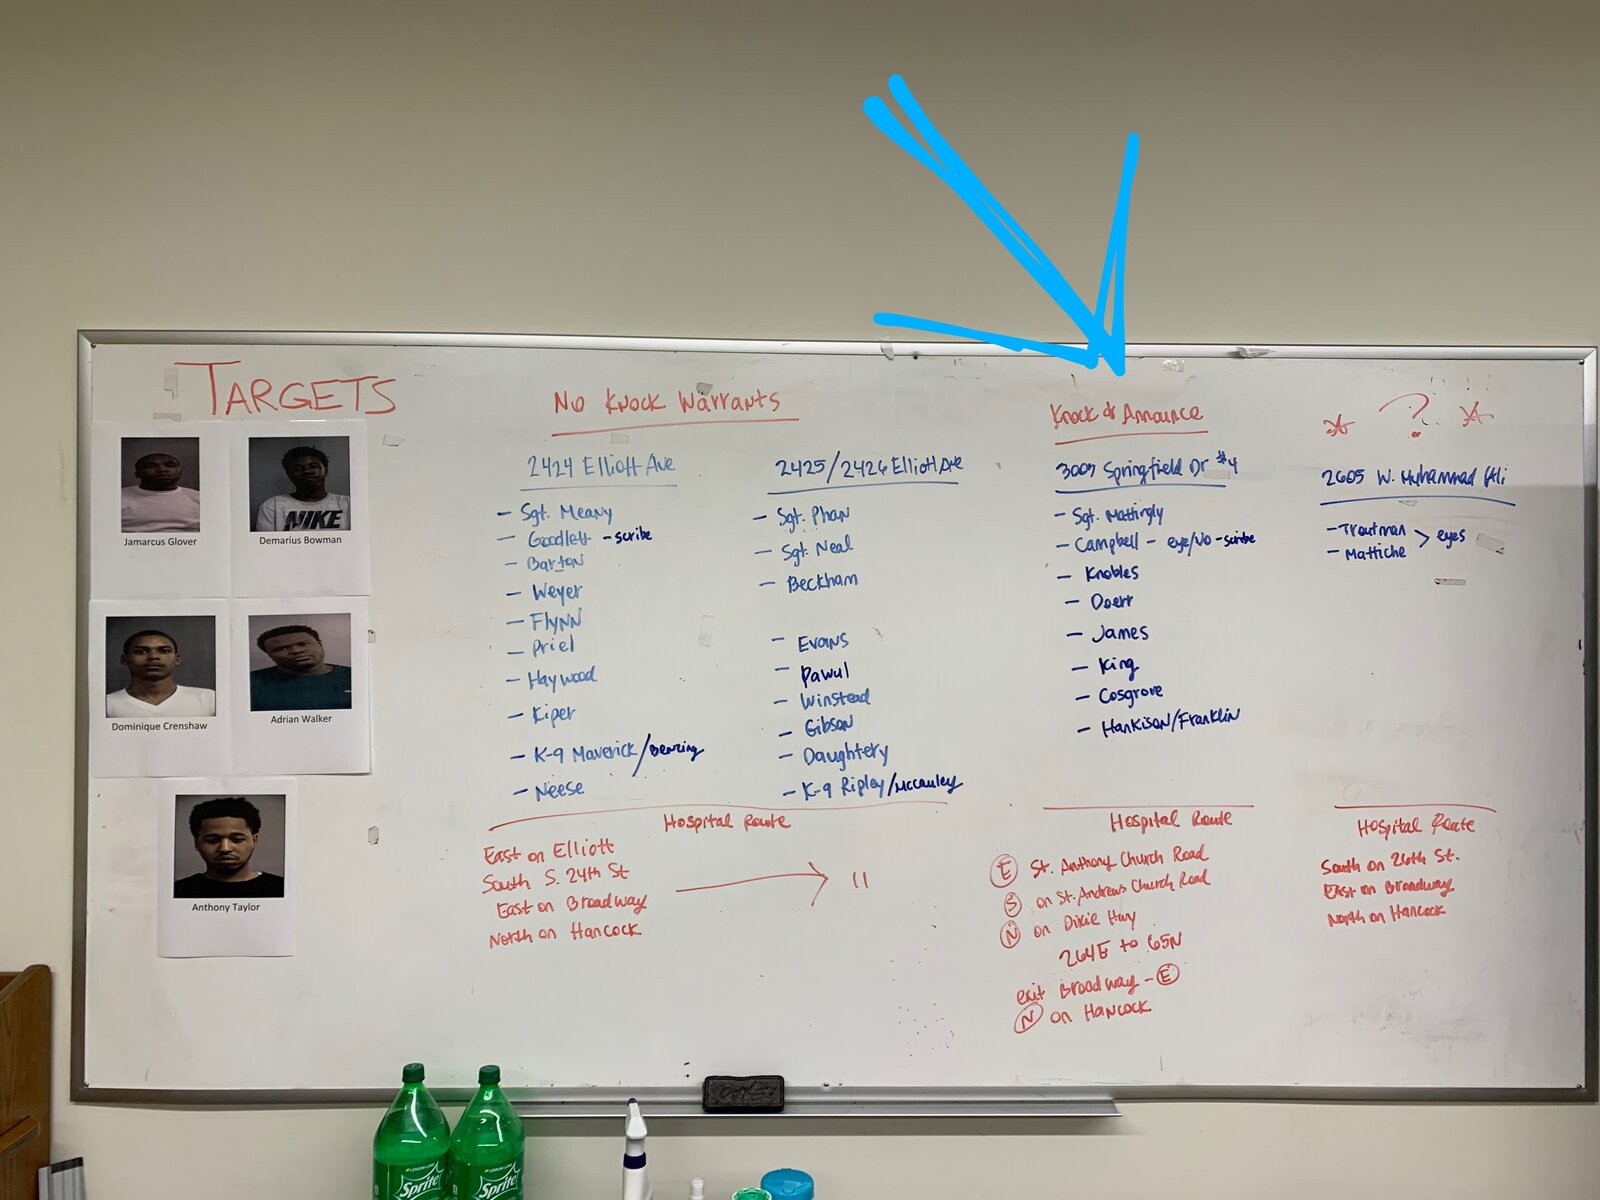 TARGETS
Jamarcus Glover
Demarius Bowman
NIKE
Dominique Crenshaw
Adrian Walker
Anthony Taylor
No Knock Warrants
2424 Elliott Ave
- Sgt. Meany
- Goodlett - scribe
- Barton
- Weyer
- Flynn
- Priel
- Haywood
- Kiper
- K-9 Maverick/Benzing
- Neese
2425/2426 Elliott Ave
- Sgt. Phan
- Sgt. Neal
- Beckham
- Evans
- Pawul
- Winstead
- Gibson
- Daughtery
- K-9 Ripley/McCauley
Hospital Route
East on Elliott
South S. 24th St
East on Broadway
North on Hancock
"
Knock & Announce
3003 Springfield Dr #4
- Sgt. Mattingly
- Campbell - eye/vo - scribe
- Knobles
- Doerr
- James
- King
- Cosgrove
- Hankison/Franklin
Hospital Route
E St. Anthony Church Road
S on St. Andrews Church Road
N on Dixie Hwy
264E to 65N
exit Broadway - E
N on Hancock
?
2605 W. Muhammad Ali
- Troutman
- Mattiche
> eyes
Hospital Route
South on 26th St.
East on Broadway
North on Hancock
Sprite
Sprite